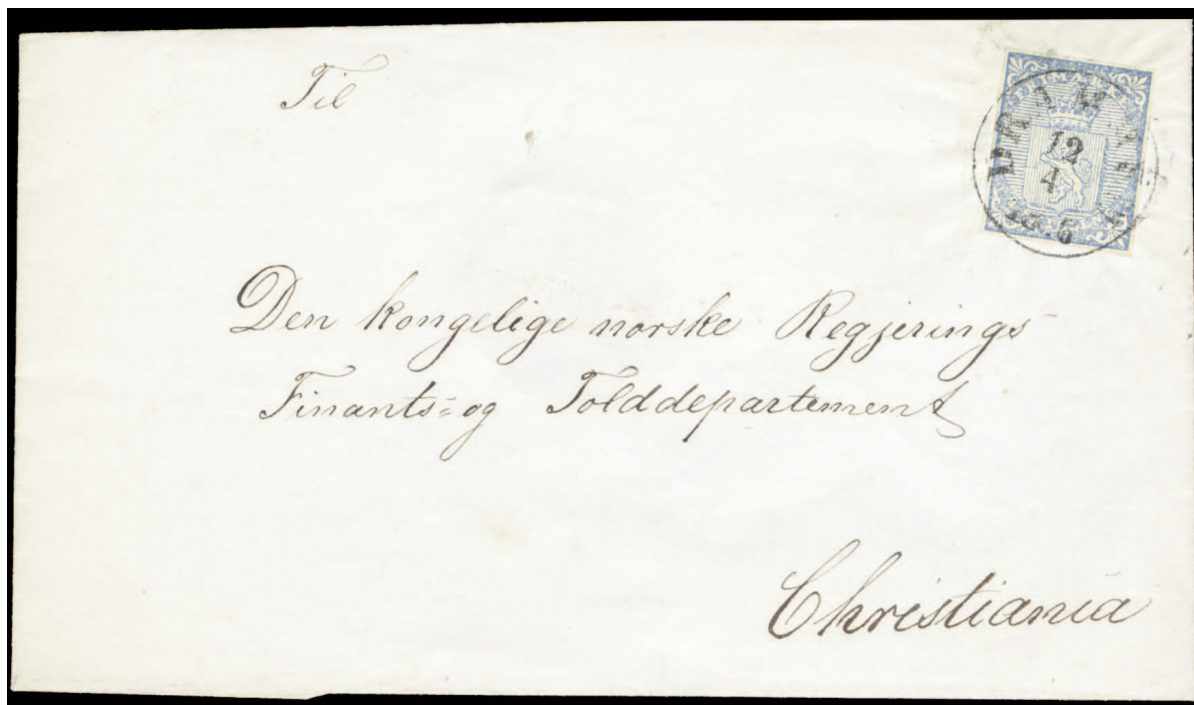 Til
FRIMÆRKE
DRAMMEN
12
4
Den kongelige norske Regjerings
Finants= og Tolddepartement
Christiania